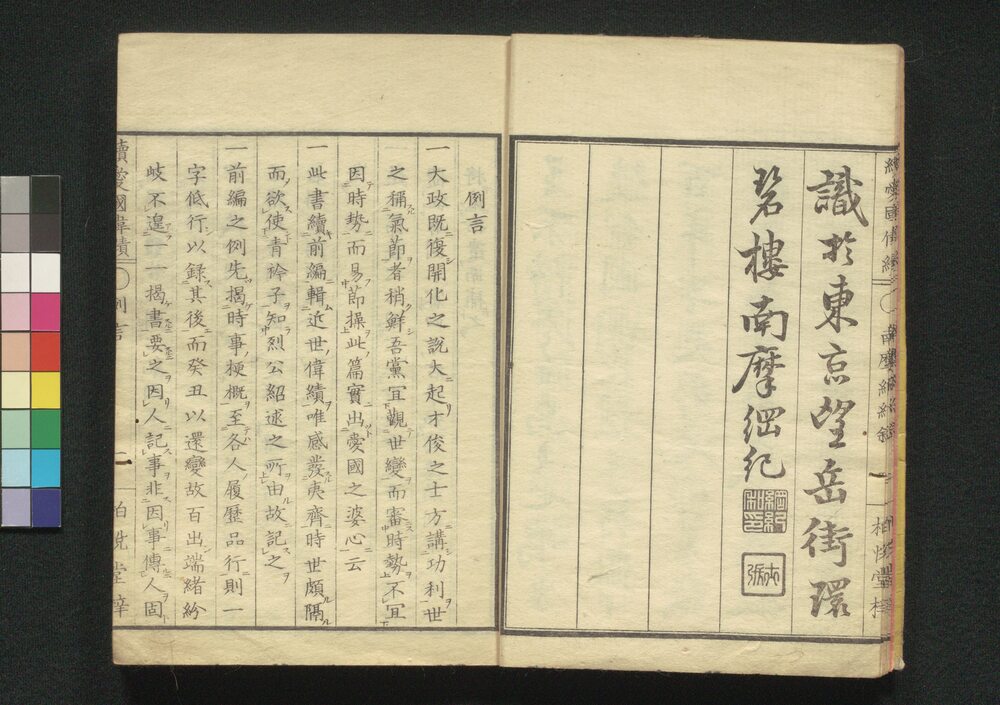 識於東京望岳街環
碧樓南摩綱紀
例言
一大政既復開化之説大起才俊之士方講功利世
之稱氣節者稍鮮吾黨宜觀世變而審時勢不宜
因時勢而易節操此篇實出愛國之婆心云
一此書續前編輯近世偉績唯感發夷齊時世頗隔
而欲使青衿子知烈公紹述之所由故記之
一前編之例先揭時事梗概至各人履歷品行則一
字低行以錄其後而癸丑以還變故百出端緒紛
岐不遑一一揭書要之因人記事非因事傳人固
續愛國偉績 例言 二